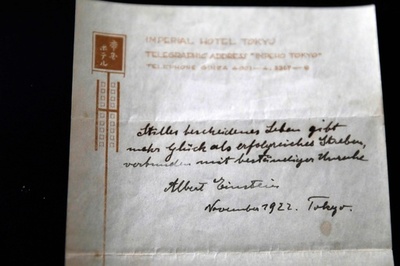 IMPERIAL HOTEL TOKYO
TELEGRAPHIC ADDRESS TOKYO"
TELEPHONE GINZA
ホテル
Stilles bescheidenes Leben gibt
mehr Glück als erfolgreiches Streben,
verbunden mit beständiger Unruhe
Albert Einstein
November 1922. Tokyo.